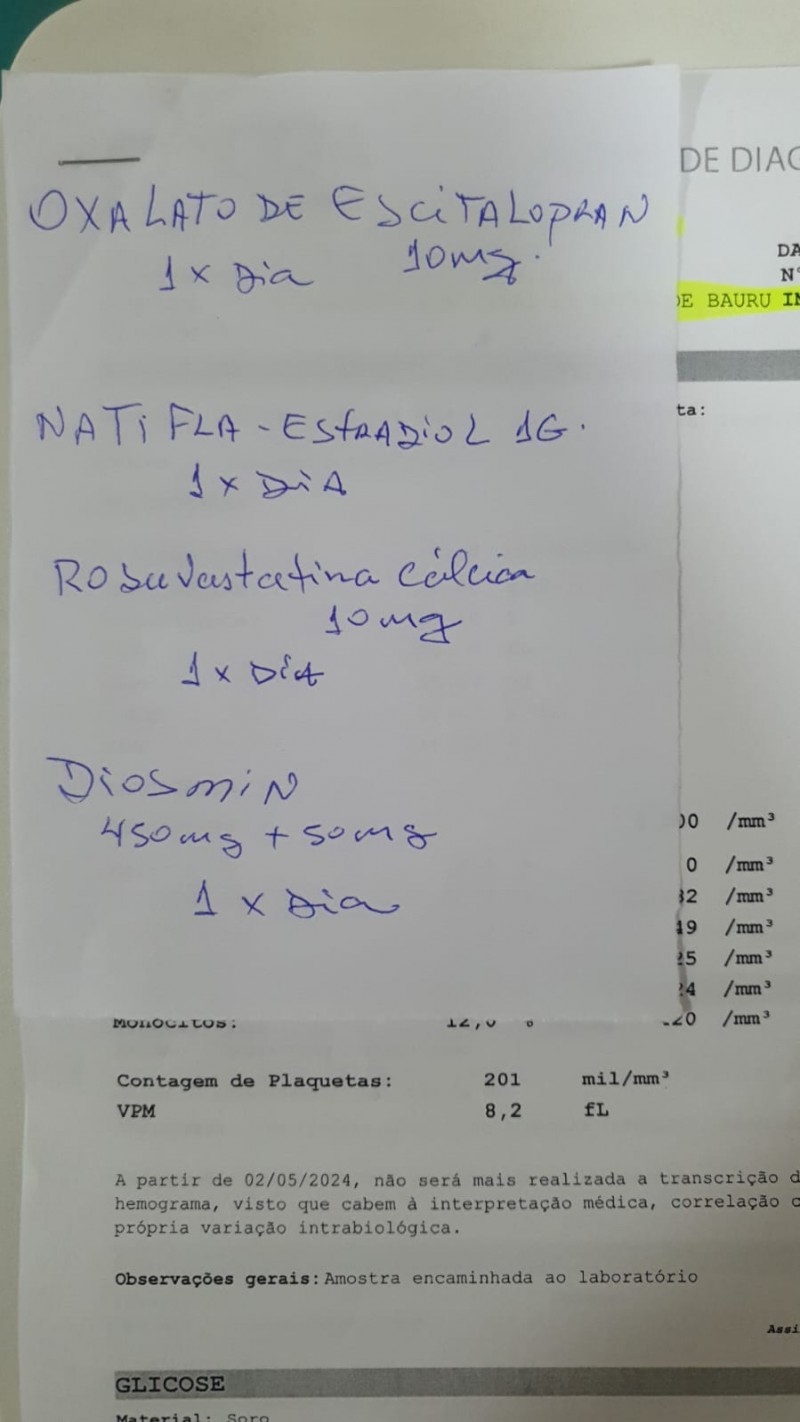 DE DIAG
OXALATO DE ESCITALOPRAN
1 x Dia 10mg.
DA
Nº
DE BAURU IN
NATIFLA - ESTRADIOL 1G.
ta:
1 x DIA
Rosuvastatina Cálcica
10mg
1 x Dia
DiosmiN
450mg + 50mg
1 x Dia
00 /mm³
0 /mm³
32 /mm³
19 /mm³
25 /mm³
24 /mm³
Monócitos: 12,0 20 /mm³
Contagem de Plaquetas: 201 mil/mm³
VPM 8,2 fL
A partir de 02/05/2024, não será mais realizada a transcrição d
hemograma, visto que cabem à interpretação médica, correlação c
própria variação intrabiológica.
Observações gerais: Amostra encaminhada ao laboratório
Assi
GLICOSE
Material: Soro